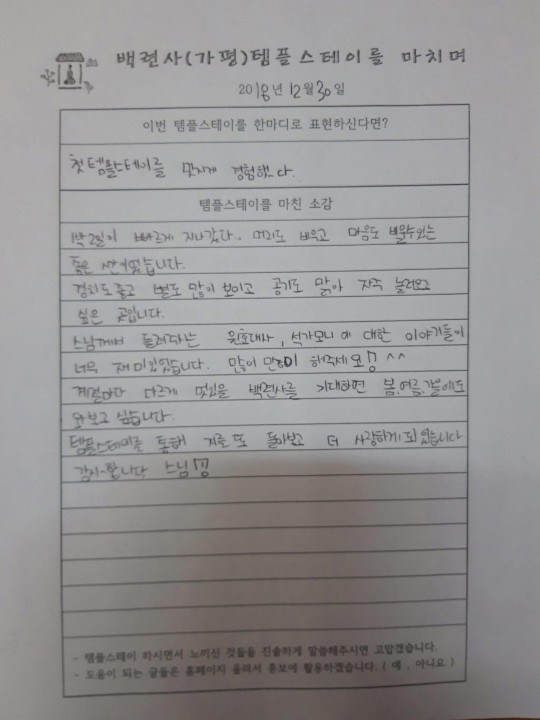 백련사(가평)템플스테이를 마치며
2018년 12월 30일
이번 템플스테이를 한마디로 표현하신다면?
첫 템플스테이를 멋지게 경험했다.
템플스테이를 마친 소감
1박2일이 빠르게 지나갔다.. 머리도 비우고 마음도 비울수있는
좋은 시간이었습니다.
경치도 좋고 별도 많이 보이고 공기도 맑아 자주 놀러오고
싶은 곳입니다.
스님께서 들려주시는 원효대사, 석가모니에 대한 이야기들이
너무 재미있었습니다. 많이 많이 해주세요!! ^^
계절마다 다르게 멋있을 백련사를 기대하면 봄,여름,가을에도
와보고 싶습니다.
템플스테이를 통해 저를 또 돌아보고 더 사랑하게 되었습니다
감사합니다 스님!!
- 템플스테이 하시면서 느끼신 것들을 진솔하게 말씀해주시면 고맙겠습니다.
- 도움이 되는 글들은 홈페이지 올려서 홍보에 활용하겠습니다. ( 예 , 아니요 )